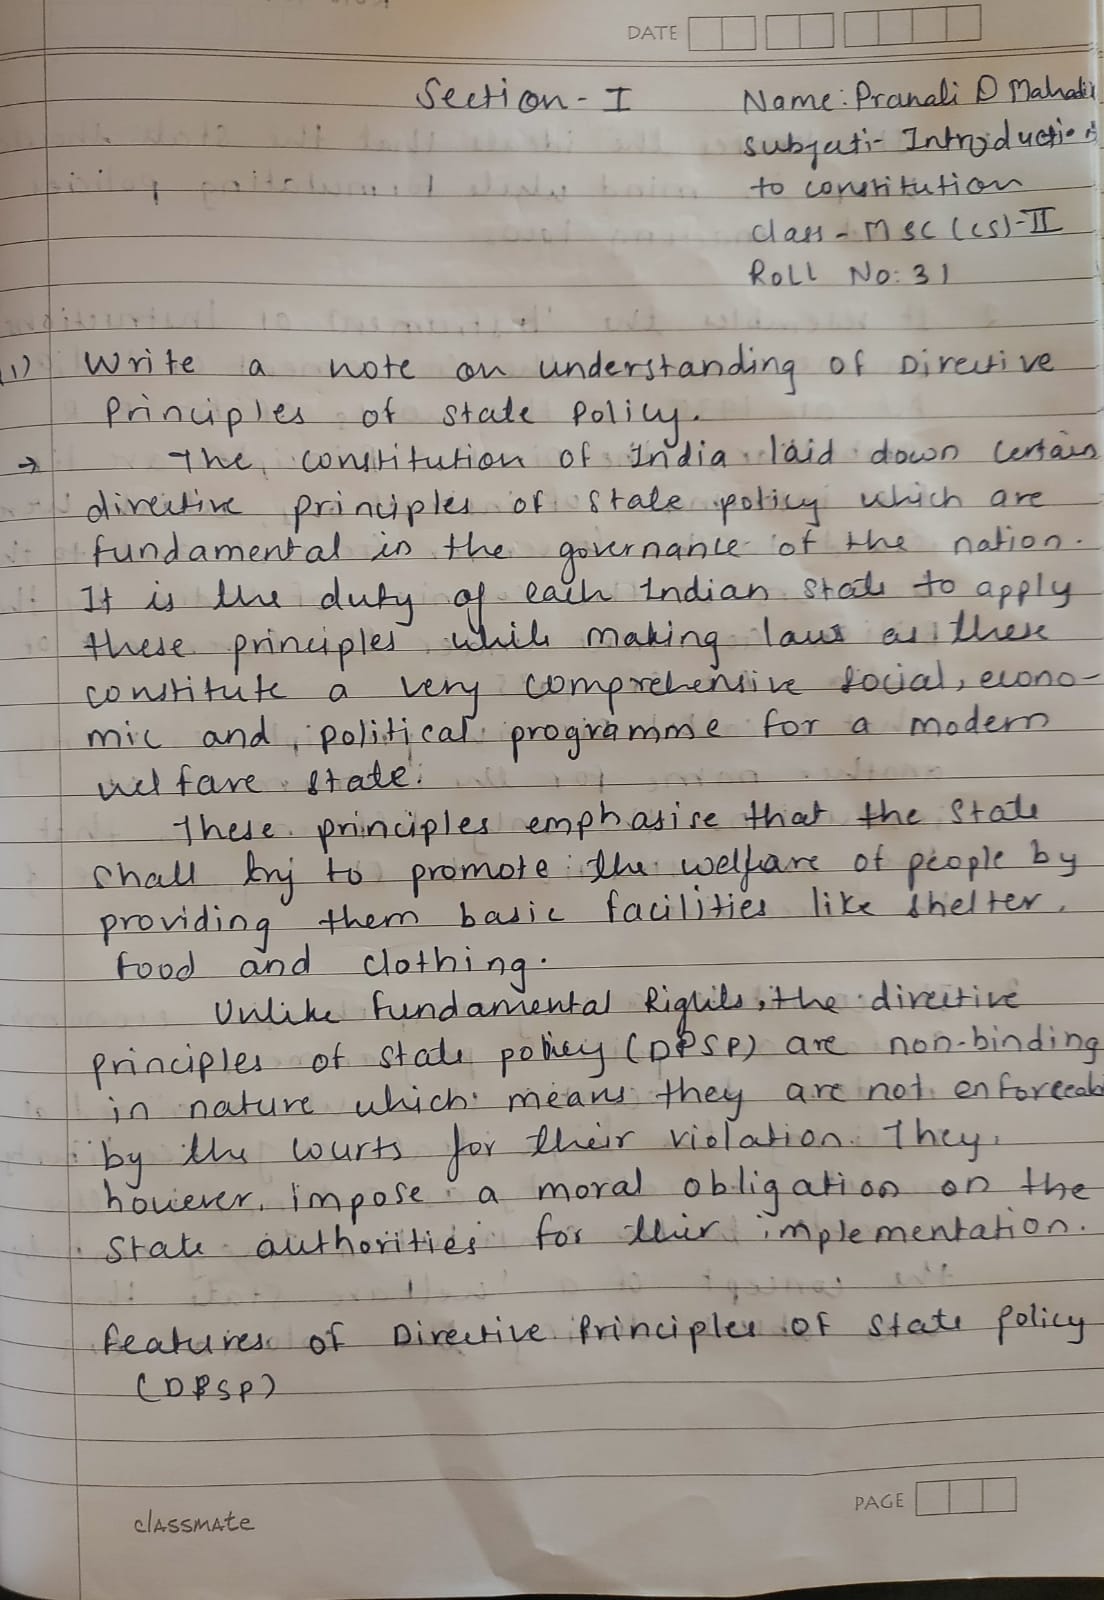 DATE
Section - I
Name: Pranali D Mahadik
Subject:- Introduction
to constitution
class - MSC (CS)-II
Roll No: 31
1) Write a note on understanding of Directive
Principles of State Policy.
→ The constitution of India laid down certain
directive principles of State policy which are
fundamental in the governance of the nation.
It is the duty of each Indian State to apply
these principles while making laws as these
constitute a very comprehensive social, econo-
mic and political programme for a modern
welfare state.
These principles emphasise that the State
shall try to promote the welfare of people by
providing them basic facilities like shelter,
food and clothing.
Unlike Fundamental Rights, the directive
principles of State policy (DPSP) are non-binding
in nature which means they are not enforceab
by the courts for their violation. They,
however, impose a moral obligation on the
State authorities for their implementation.
Features of Directive Principles of State Policy
(DPSP)
PAGE
classmate